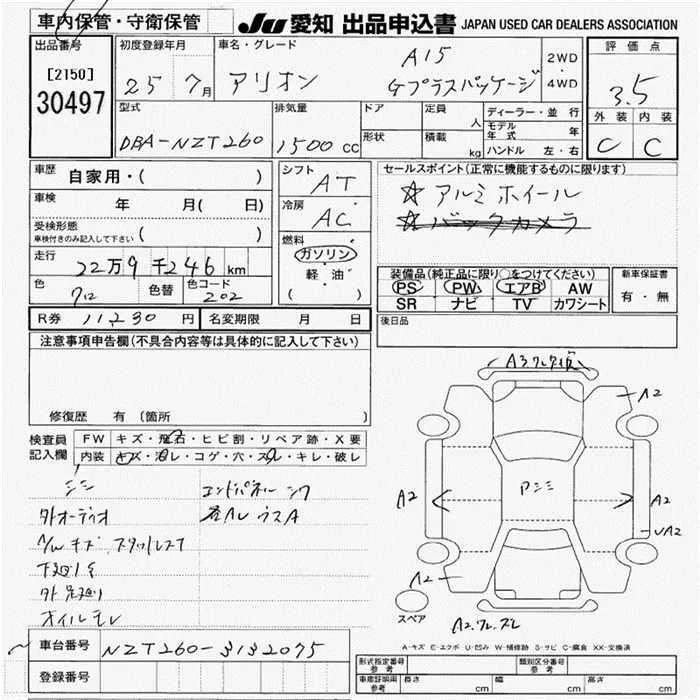 車内保管・守衛保管 JU 愛知 出品申込書 JAPAN USED CAR DEALERS ASSOCIATION
出品番号 [2150] 30497
初度登録年月 25 7月
車名・グレード アリオン A15 Gプラスパッケージ
2WD・4WD
評価点 3.5
外装 C 内装 C
型式 DBA-NZT260
排気量 1500 cc
ドア 形状
定員 人 積載 kg
ディーラー・並行
モデル年式 年
ハンドル 左・右
車歴 自家用・( )
車検 年 月( 日)
受検形態 車検付きのみ記入して下さい ( )
走行 22万9千246km
色 クロ 色替 色コード 202
シフト AT
冷房 AC
燃料 ガソリン 軽油 ( )
セールスポイント(正常に機能するものに限ります)
☆ アルミホイール
☆ バックカメラ
装備品(純正品に限り○をつけてください)
PS PW エアB AW
SR ナビ TV カワシート
新車保証書 有・無
R券 11,230 円 名変期限 月 日
後日品
注意事項申告欄(不具合内容等は具体的に記入して下さい)
修復歴 有(箇所 )
検査員記入欄
FW キズ・飛石・ヒビ割・リペア跡・X要
内装 キズ・汚レ・コゲ・穴・スレ・キレ・破レ
シミ
外オーディオ
A/Wキズ スタッドレス
下廻りS
外 足廻り
オイルモレ
エンドパネル
A2
A2
A2
UA2
A2
スペア
A-キズ E-エクボ U-凹み W-補修跡 S-サビ C-腐食 XX-交換済
車台番号 NZT260-3132075
登録番号
形式指定番号 参考 類別区分番号 参考
車庫証明用 参考 長さ cm 幅 cm 高さ cm